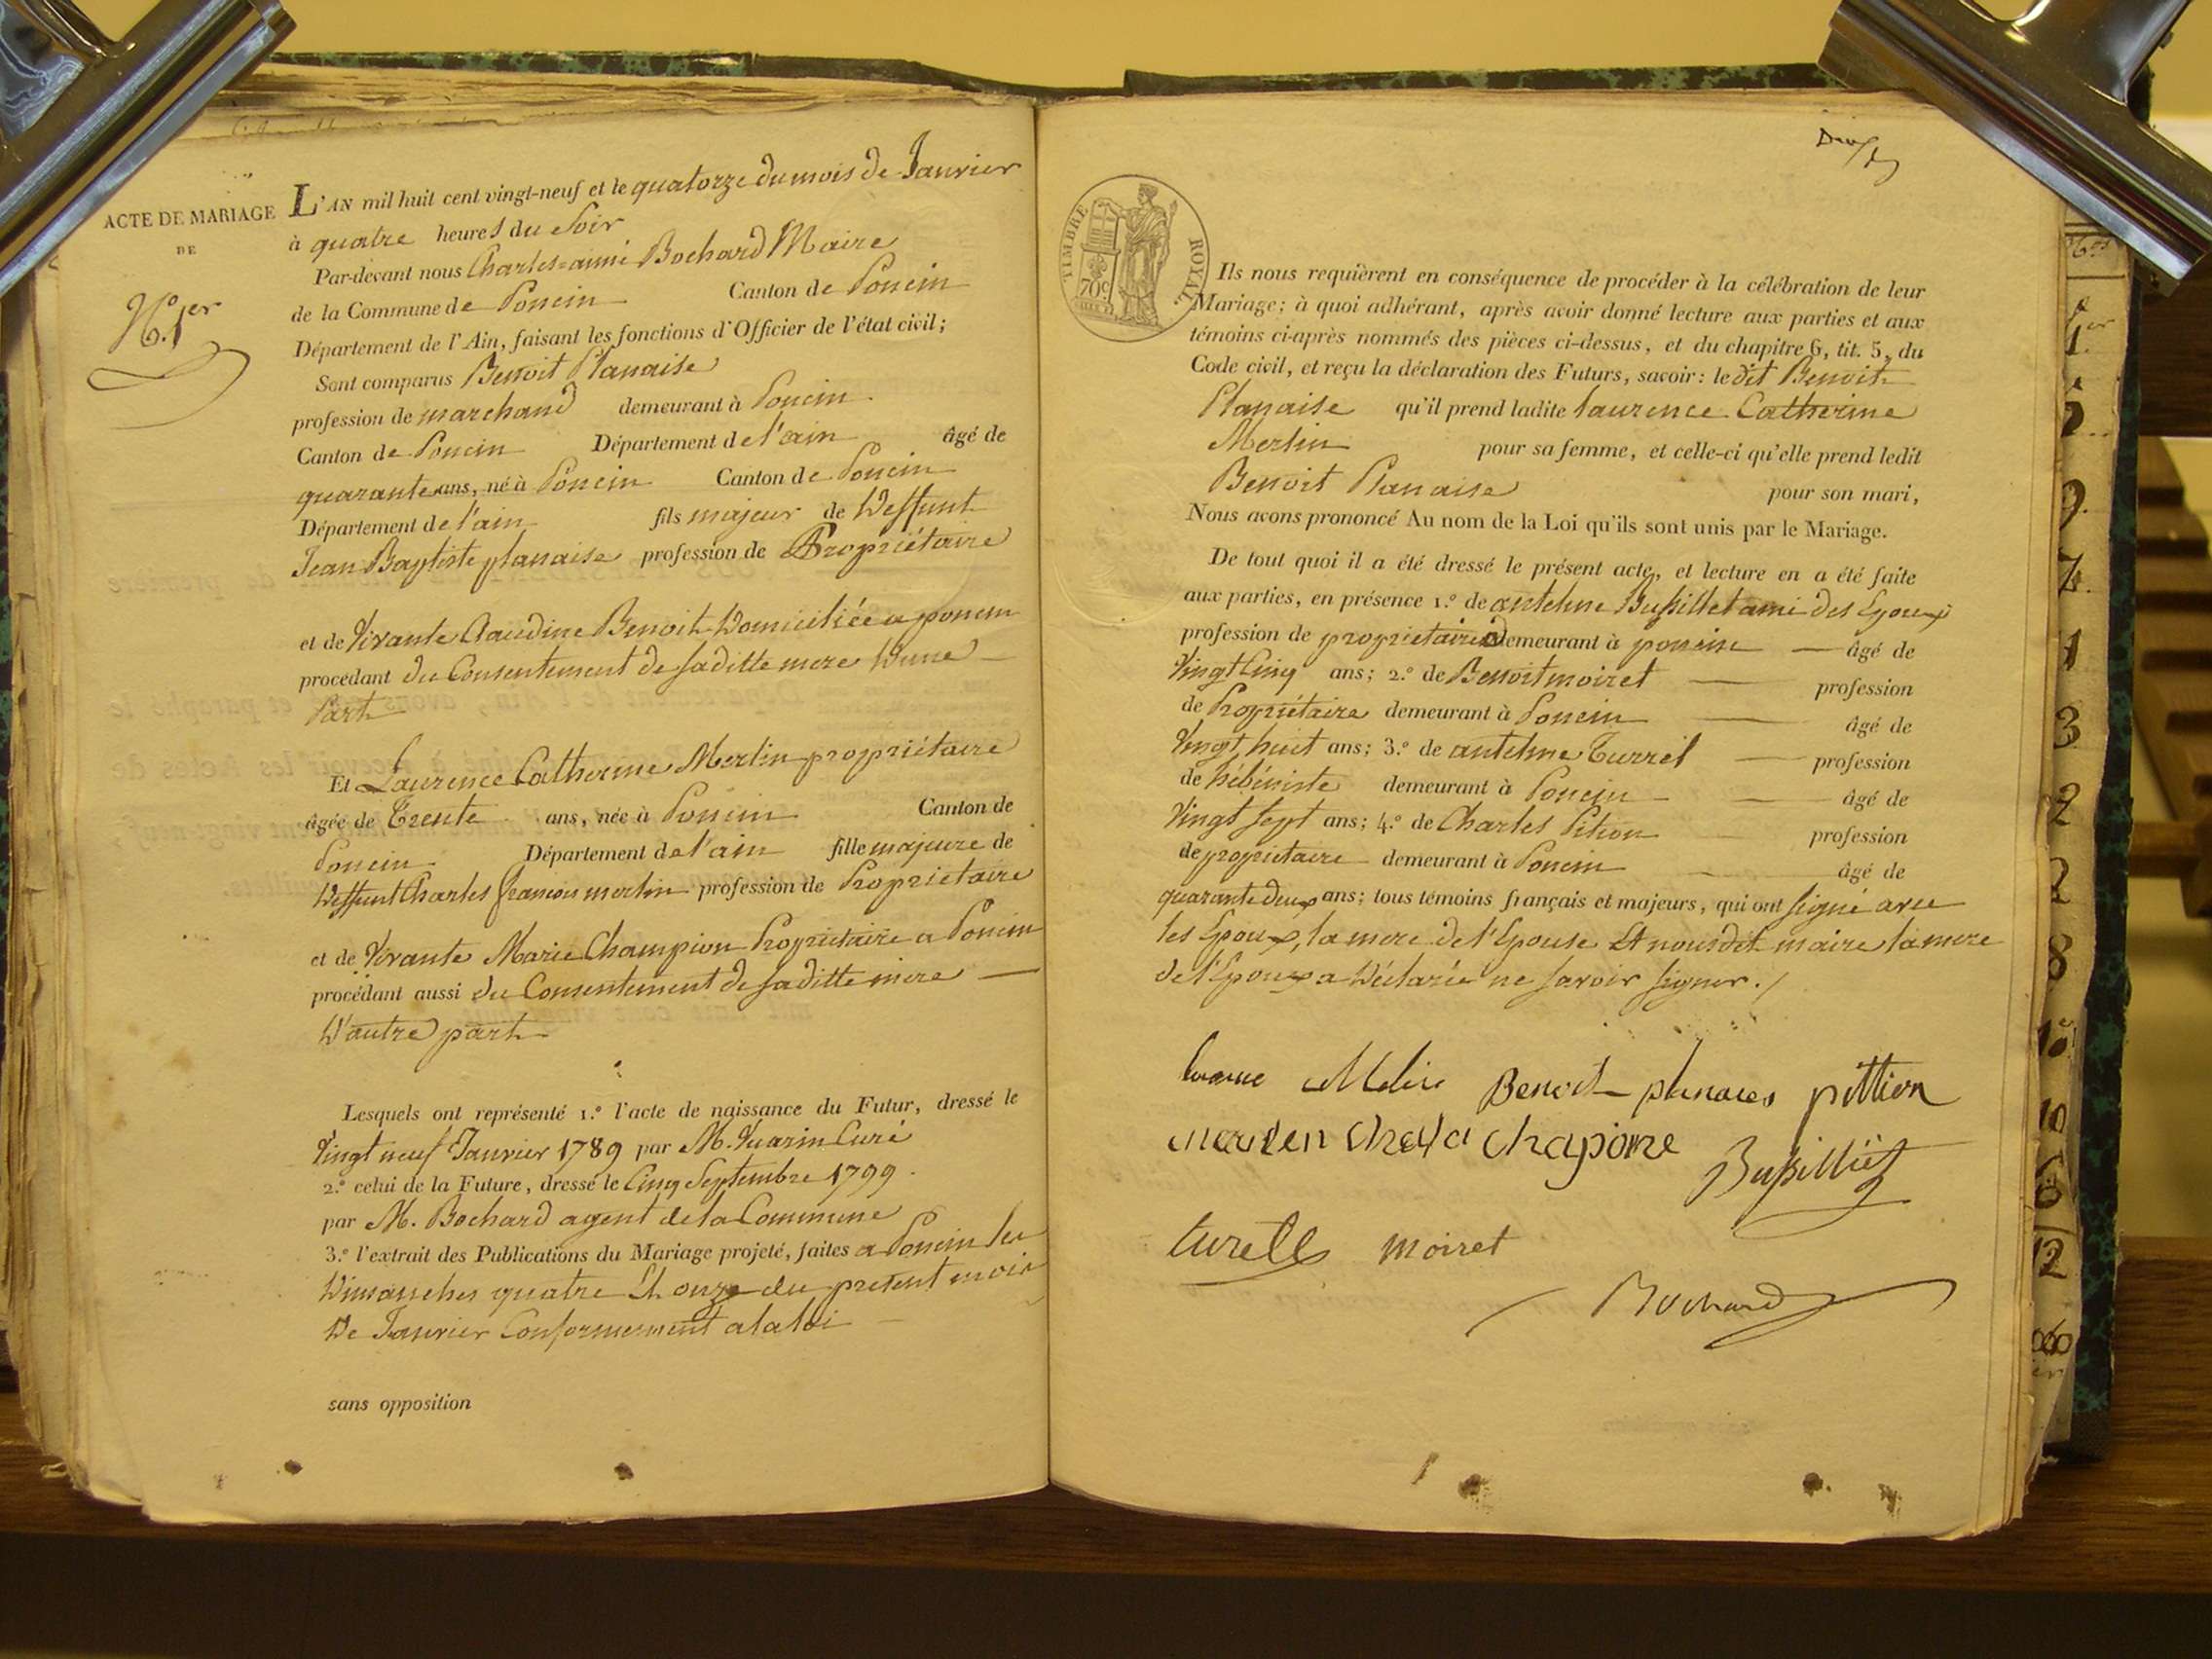 ACTE DE MARIAGE
DE
N.º 1er
L'AN mil huit cent vingt-neuf et le quatorze du mois de Janvier
à quatre heures du Soir
Par-devant nous Charles=aimé Bochard Maire
de la Commune de Poncin Canton de Poncin
Département de l'Ain, faisant les fonctions d'Officier de l'état civil;
Sont comparus Benoit Planaise
profession de marchand demeurant à Poncin
Canton de Poncin Département de l'ain âgé de
quarante ans, né à Poncin Canton de Poncin
Département de l'ain fils majeur de Deffunt
Jean Baptiste planaise profession de Propriétaire
et de Vivante Claudine Benoit Domiciliée a poncin
procédant du Consentement de saditte mere D'une
Part
Et Laurence Catherine Merlin propriétaire
âgée de Trente ans, née à Poncin Canton de
Poncin Département de l'ain fille majeure de
Deffunt Charles françois merlin profession de Propriétaire
et de Vivante Marie Champion Propriétaire a Poncin
procédant aussi du Consentement de saditte mère
D'autre part
Lesquels ont représenté 1.º l'acte de naissance du Futur, dressé le
Vingt neuf Janvier 1789 par M. Vuarin Curé
2.º celui de la Future, dressé le Cinq Septembre 1799.
par M. Bochard agent de la Commune
3.º l'extrait des Publications du Mariage projeté, faites a Poncin les
Dimanches quatre Et onze du présent mois
De Janvier Conformement a la loi
sans opposition
TIMBRE ROYAL
70c
Ils nous requièrent en conséquence de procéder à la célébration de leur
Mariage; à quoi adhérant, après avoir donné lecture aux parties et aux
témoins ci-après nommés des pièces ci-dessus, et du chapitre 6, tit. 5, du
Code civil, et reçu la déclaration des Futurs, savoir: le dit Benoit
Planaise qu'il prend ladite laurence Catherine
Merlin pour sa femme, et celle-ci qu'elle prend ledit
Benoit Planaise pour son mari,
Nous avons prononcé Au nom de la Loi qu'ils sont unis par le Mariage.
De tout quoi il a été dressé le présent acte, et lecture en a été faite
aux parties, en présence 1.º de antelme Bussillet ami des Epoux
profession de propriétaire demeurant à poncin âgé de
Vingt Cinq ans; 2.º de Benoit moiret profession
de Propriétaire demeurant à Poncin âgé de
Vingt huit ans; 3.º de antelme Turrel profession
de hébéniste demeurant à Poncin âgé de
Vingt Sept ans; 4.º de Charles Pition profession
de propriétaire demeurant à Poncin âgé de
quarante deux ans; tous témoins français et majeurs, qui ont signé avec
les Epoux, la mere de l'Epouse Et nous dit maire la mere
de l'Epoux a Déclarée ne savoir signer./
Benoit planaies pittion
Bussilliet
turell moiret
Bochard